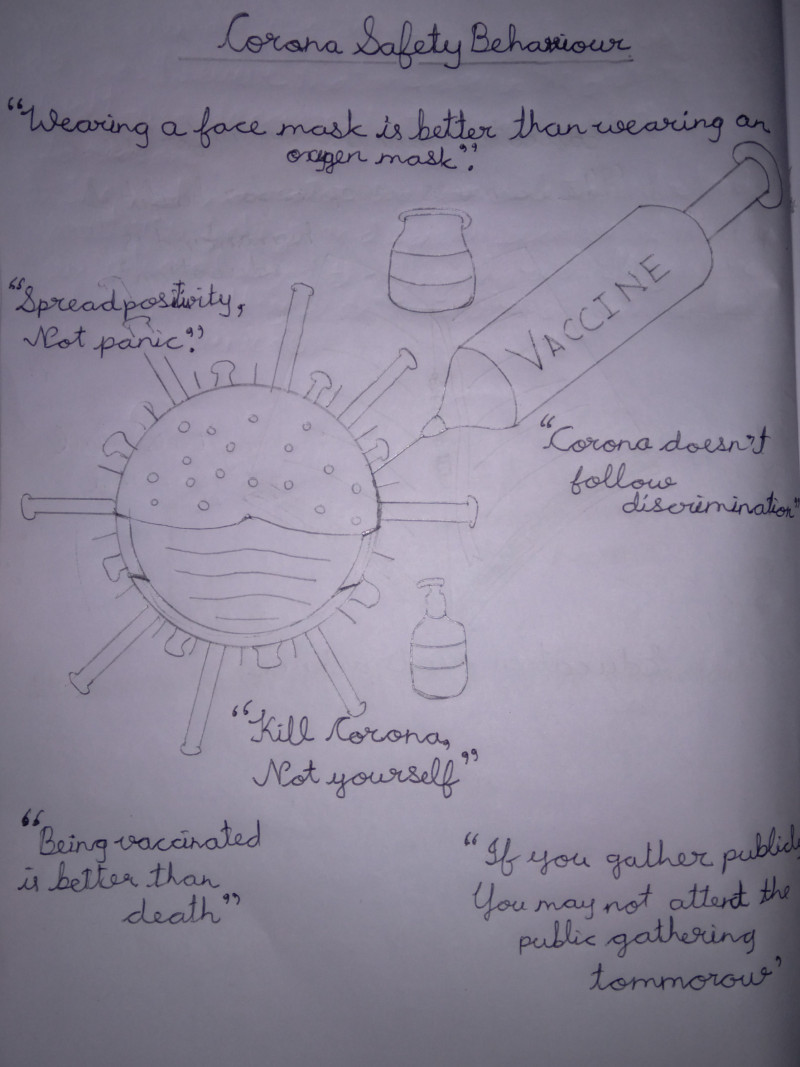 Corona Safety Behaviour
"Wearing a face mask is better than wearing an
oxygen mask".
"Spread positivity,
Not panic."
VACCINE
"Corona doesn't
follow
discrimination"
"Kill Corona,
Not yourself"
"Being vaccinated
is better than
death"
"If you gather publicly
You may not attend the
public gathering
tommorow"